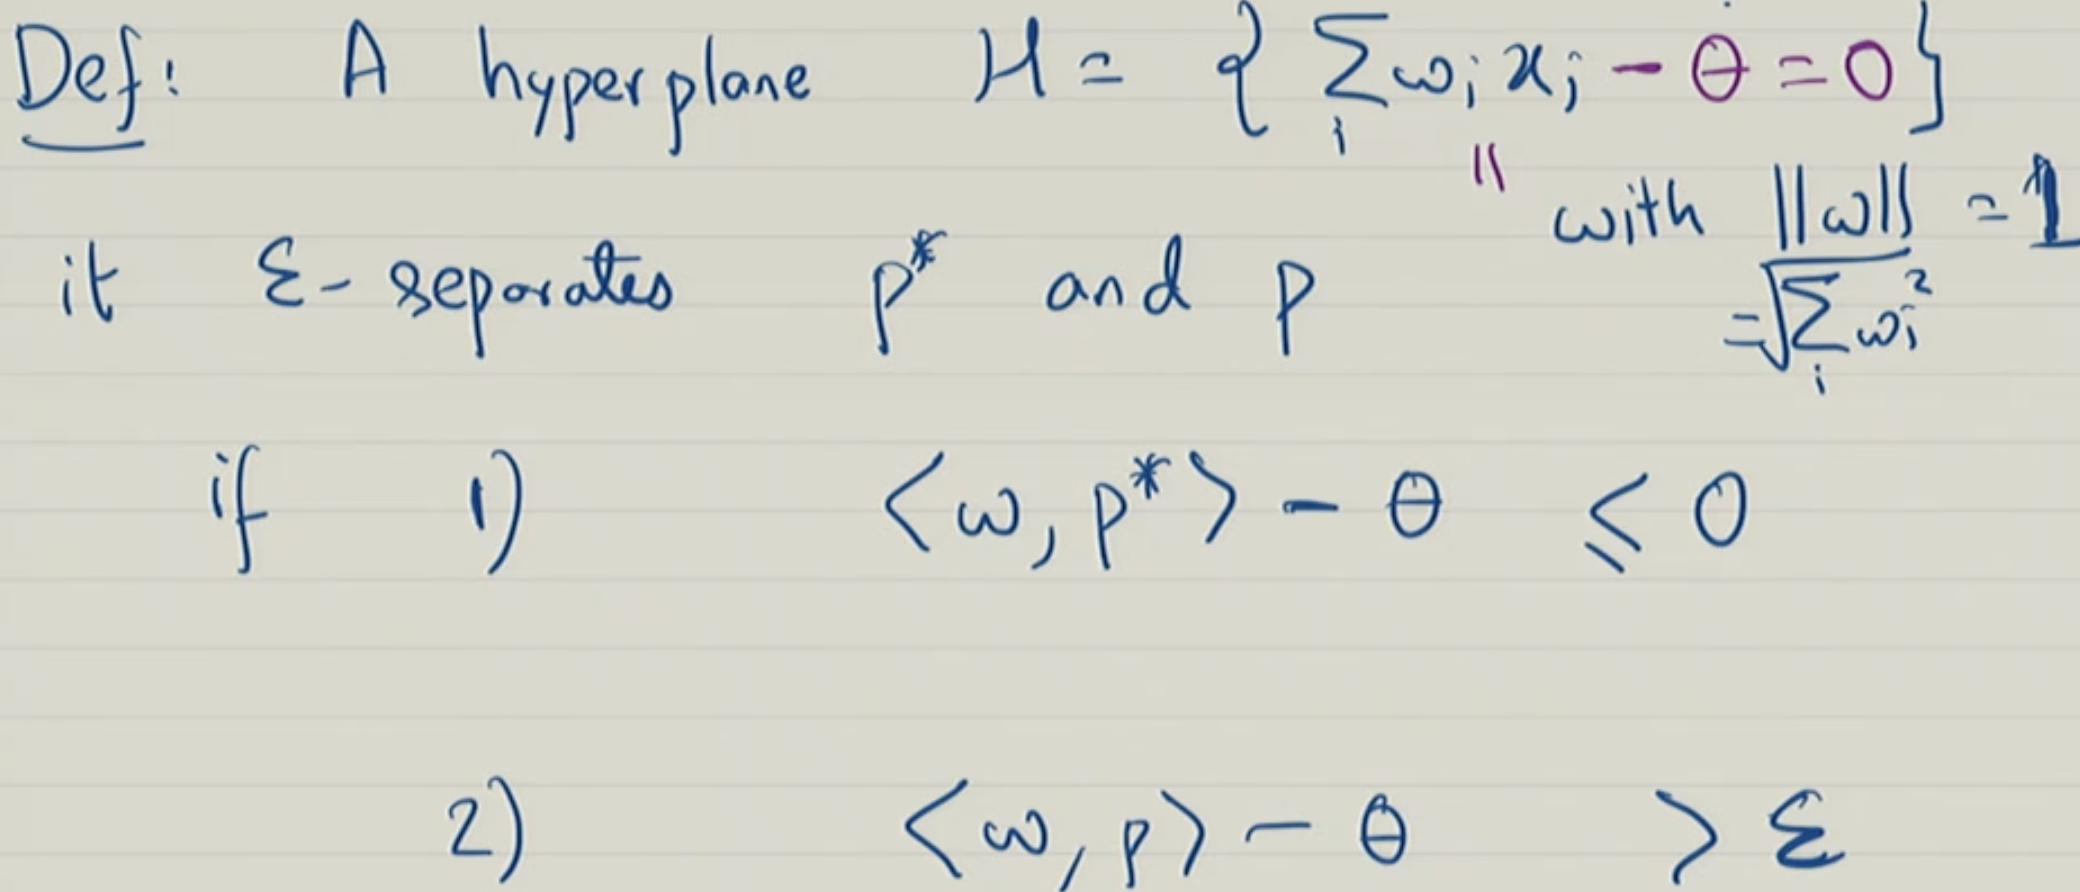 Def: A hyperplane H = { Σ_i ω_i x_i - θ = 0 }
" with ||ω|| = 1
it ε-separates p* and p = √(Σ_i ω_i²)
if 1) <ω, p*> - θ ≤ 0
2) <ω, p> - θ > ε